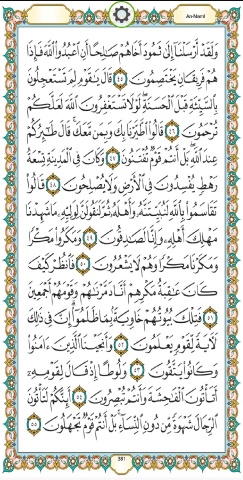 An-Naml
وَلَقَدْ أَرْسَلْنَآ إِلَىٰ ثَمُودَ أَخَاهُمْ صَٰلِحًا أَنِ ٱعْبُدُوا۟ ٱللَّهَ فَإِذَا
هُمْ فَرِيقَانِ يَخْتَصِمُونَ ٤٥ قَالَ يَٰقَوْمِ لِمَ تَسْتَعْجِلُونَ
بِٱلسَّيِّئَةِ قَبْلَ ٱلْحَسَنَةِ لَوْلَا تَسْتَغْفِرُونَ ٱللَّهَ لَعَلَّكُمْ
تُرْحَمُونَ ٤٦ قَالُوا۟ ٱطَّيَّرْنَا بِكَ وَبِمَن مَّعَكَ قَالَ طَٰٓئِرُكُمْ
عِندَ ٱللَّهِ بَلْ أَنتُمْ قَوْمٌ تُفْتَنُونَ ٤٧ وَكَانَ فِى ٱلْمَدِينَةِ تِسْعَةُ
رَهْطٍ يُفْسِدُونَ فِى ٱلْأَرْضِ وَلَا يُصْلِحُونَ ٤٨ قَالُوا۟
تَقَاسَمُوا۟ بِٱللَّهِ لَنُبَيِّتَنَّهُۥ وَأَهْلَهُۥ ثُمَّ لَنَقُولَنَّ لِوَلِيِّهِۦ مَا شَهِدْنَا
مَهْلِكَ أَهْلِهِۦ وَإِنَّا لَصَٰدِقُونَ ٤٩ وَمَكَرُوا۟ مَكْرًا
وَمَكَرْنَا مَكْرًا وَهُمْ لَا يَشْعُرُونَ ٥٠ فَٱنظُرْ كَيْفَ
كَانَ عَٰقِبَةُ مَكْرِهِمْ أَنَّا دَمَّرْنَٰهُمْ وَقَوْمَهُمْ أَجْمَعِينَ
٥١ فَتِلْكَ بُيُوتُهُمْ خَاوِيَةًۢ بِمَا ظَلَمُوٓا۟ إِنَّ فِى ذَٰلِكَ
لَءَايَةً لِّقَوْمٍ يَعْلَمُونَ ٥٢ وَأَنجَيْنَا ٱلَّذِينَ ءَامَنُوا۟
وَكَانُوا۟ يَتَّقُونَ ٥٣ وَلُوطًا إِذْ قَالَ لِقَوْمِهِۦٓ
أَتَأْتُونَ ٱلْفَٰحِشَةَ وَأَنتُمْ تُبْصِرُونَ ٥٤ أَئِنَّكُمْ لَتَأْتُونَ
ٱلرِّجَالَ شَهْوَةً مِّن دُونِ ٱلنِّسَآءِ بَلْ أَنتُمْ قَوْمٌ تَجْهَلُونَ ٥٥
381